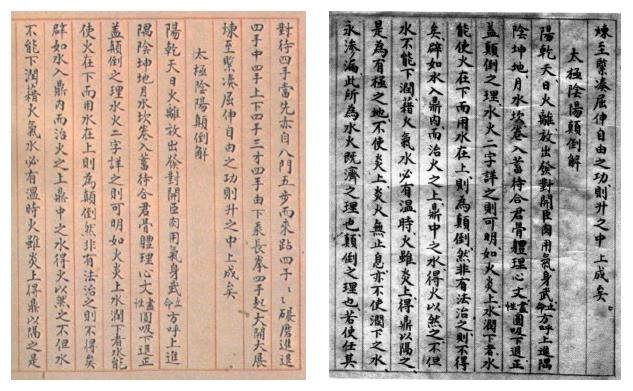 對待四手當先亦自八門五步而來跕四手々碾磨進退
四手中四手上下四手三才四手由下乘長拳四手起大開大展
煉至緊湊屈伸自由之功則升之中上成矣
太極陰陽顛倒解
陽乾天日火離放出發對開臣肉用氣身武立命方呼上進
隅陰坤地月水坎卷入蓄待合君骨體理心文盡性圓吸下退正
蓋顛倒之理水火二字詳之則可明如火炎上水潤下者水能
使火在下而用水在上則為顛倒然非有法治之則不得矣
辟如水入鼎內而治火之上鼎中之水得火以然之不但水
不能下潤藉火氣水必有溫時火雖炎上得鼎以隔之是
煉至緊湊屈伸自由之功則升之中上成矣。
太極陰陽顛倒解
陽乾天日火離放出發對開臣肉用氣身武立命方呼上進隅
陰坤地月水坎卷入蓄待合君骨體理心文盡性圓吸下退正
蓋顛倒之理水火二字詳之則可明如火炎上水潤下者水
能使火在下而用水在上則為顛倒然非有法治之則不得
矣辟如水入鼎內而治火之上鼎中之水得火以然之不但
水不能下潤藉火氣水必有溫時火雖炎上得鼎以隔之
是為有極之地不使炎上炎火無止息亦不使潤下之水
永滲漏此所為水火既濟之理也顛倒之理也若使任其